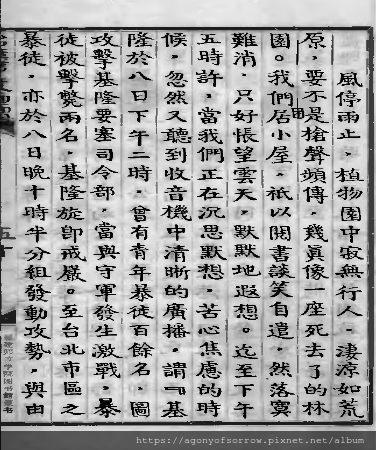 風停雨止，植物園中寂無行人，淒涼如荒
原，要不是槍聲頻傳，幾真像一座死去了的林
園。我們困居小屋，祇以閱書談笑自遣，然落寞
難消，只好悵望雲天，默默地遐想。迄至下午
五時許，當我們正在沉思默想，苦心焦慮的時
候，忽然又聽到收音機中清晰的廣播，謂「基
隆於八日下午二時，曾有青年暴徒百餘名，圖
攻擊基隆要塞司令部，當與守軍發生激戰，暴
徒被擊斃兩名，基隆旋即戒嚴。至台北市區之
暴徒，亦於八日晚十時半分組發動攻勢，與由
https://agonyofsorrow.pixnet.net/album